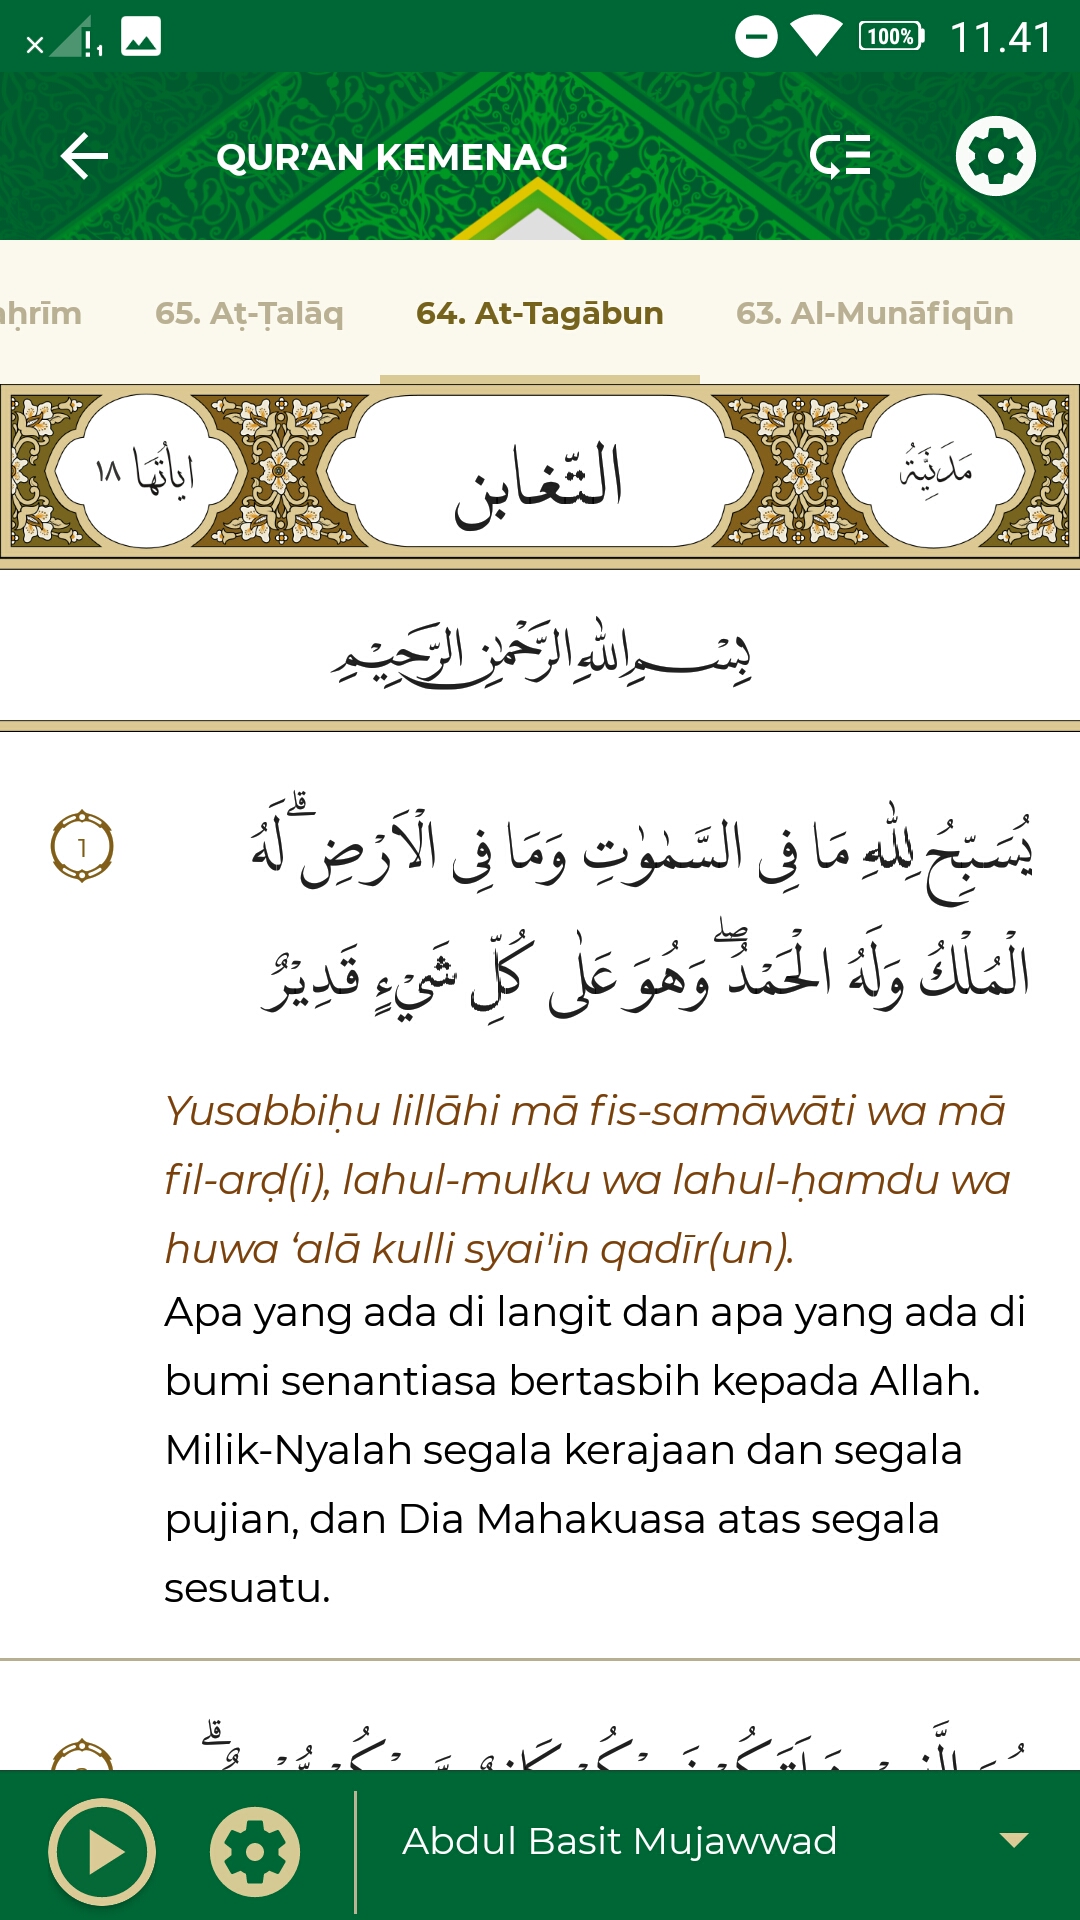 11.41
100%
QUR’AN KEMENAG
aḥrīm 65. Aṭ-Ṭalāq 64. At-Tagābun 63. Al-Munāfiqūn
مَدَنِيَّةُ التّغابن اٰيَاتُهَا ١٨
بِسْمِ اللّٰهِ الرَّحْمٰنِ الرَّحِيْمِ
1
يُسَبِّحُ لِلّٰهِ مَا فِى السَّمٰوٰتِ وَمَا فِى الْاَرْضِۗ لَهُ
الْمُلْكُ وَلَهُ الْحَمْدُۖ وَهُوَ عَلٰى كُلِّ شَيْءٍ قَدِيْرٌ
Yusabbiḥu lillāhi mā fis-samāwāti wa mā
fil-arḍ(i), lahul-mulku wa lahul-ḥamdu wa
huwa ‘alā kulli syai'in qadīr(un).
Apa yang ada di langit dan apa yang ada di
bumi senantiasa bertasbih kepada Allah.
Milik-Nyalah segala kerajaan dan segala
pujian, dan Dia Mahakuasa atas segala
sesuatu.
Abdul Basit Mujawwad